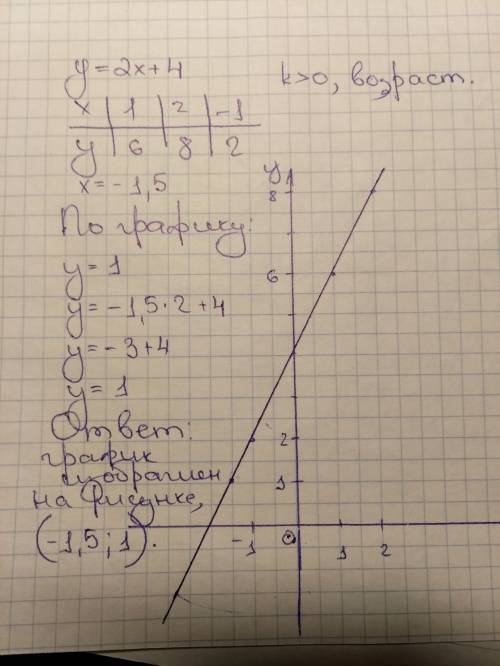 y = 2x+4
k>0, возраст.
x | 1 | 2 | -1
y | 6 | 8 | 2
x = -1,5
По графику:
y = 1
y = -1,5·2+4
y = -3+4
y = 1
Ответ:
график
изображен
на рисунке,
(-1,5; 1).
y
8
6
2
1
-1 0 1 2